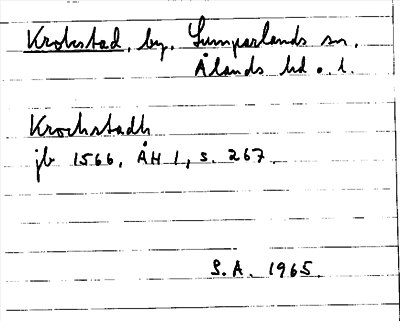 Krokstad, by, Lumparlands sn,
Ålands hd o. l.
Krochstadh
jb 1566, ÅH 1, s. 267.
S.A. 1965.